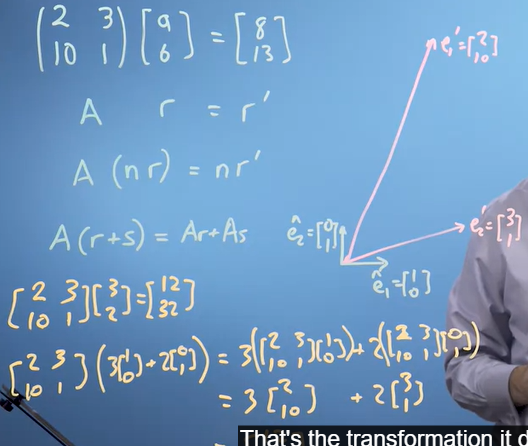 (2 3
10 1)[a
b] = [8
13]
A r = r'
A (nr) = nr'
A(r+s) = Ar+As
e₁'=[2
10]
e₂'=[3
1]
ê₂=[0
1]
ê₁=[1
0]
[2 3
10 1][3
2]=[12
32]
[2 3
10 1](3[1
0]+2[0
1]) = 3([2 3
10 1][1
0])+2([2 3
10 1][0
1])
= 3[2
10] + 2[3
1]
=
That's the transformation it